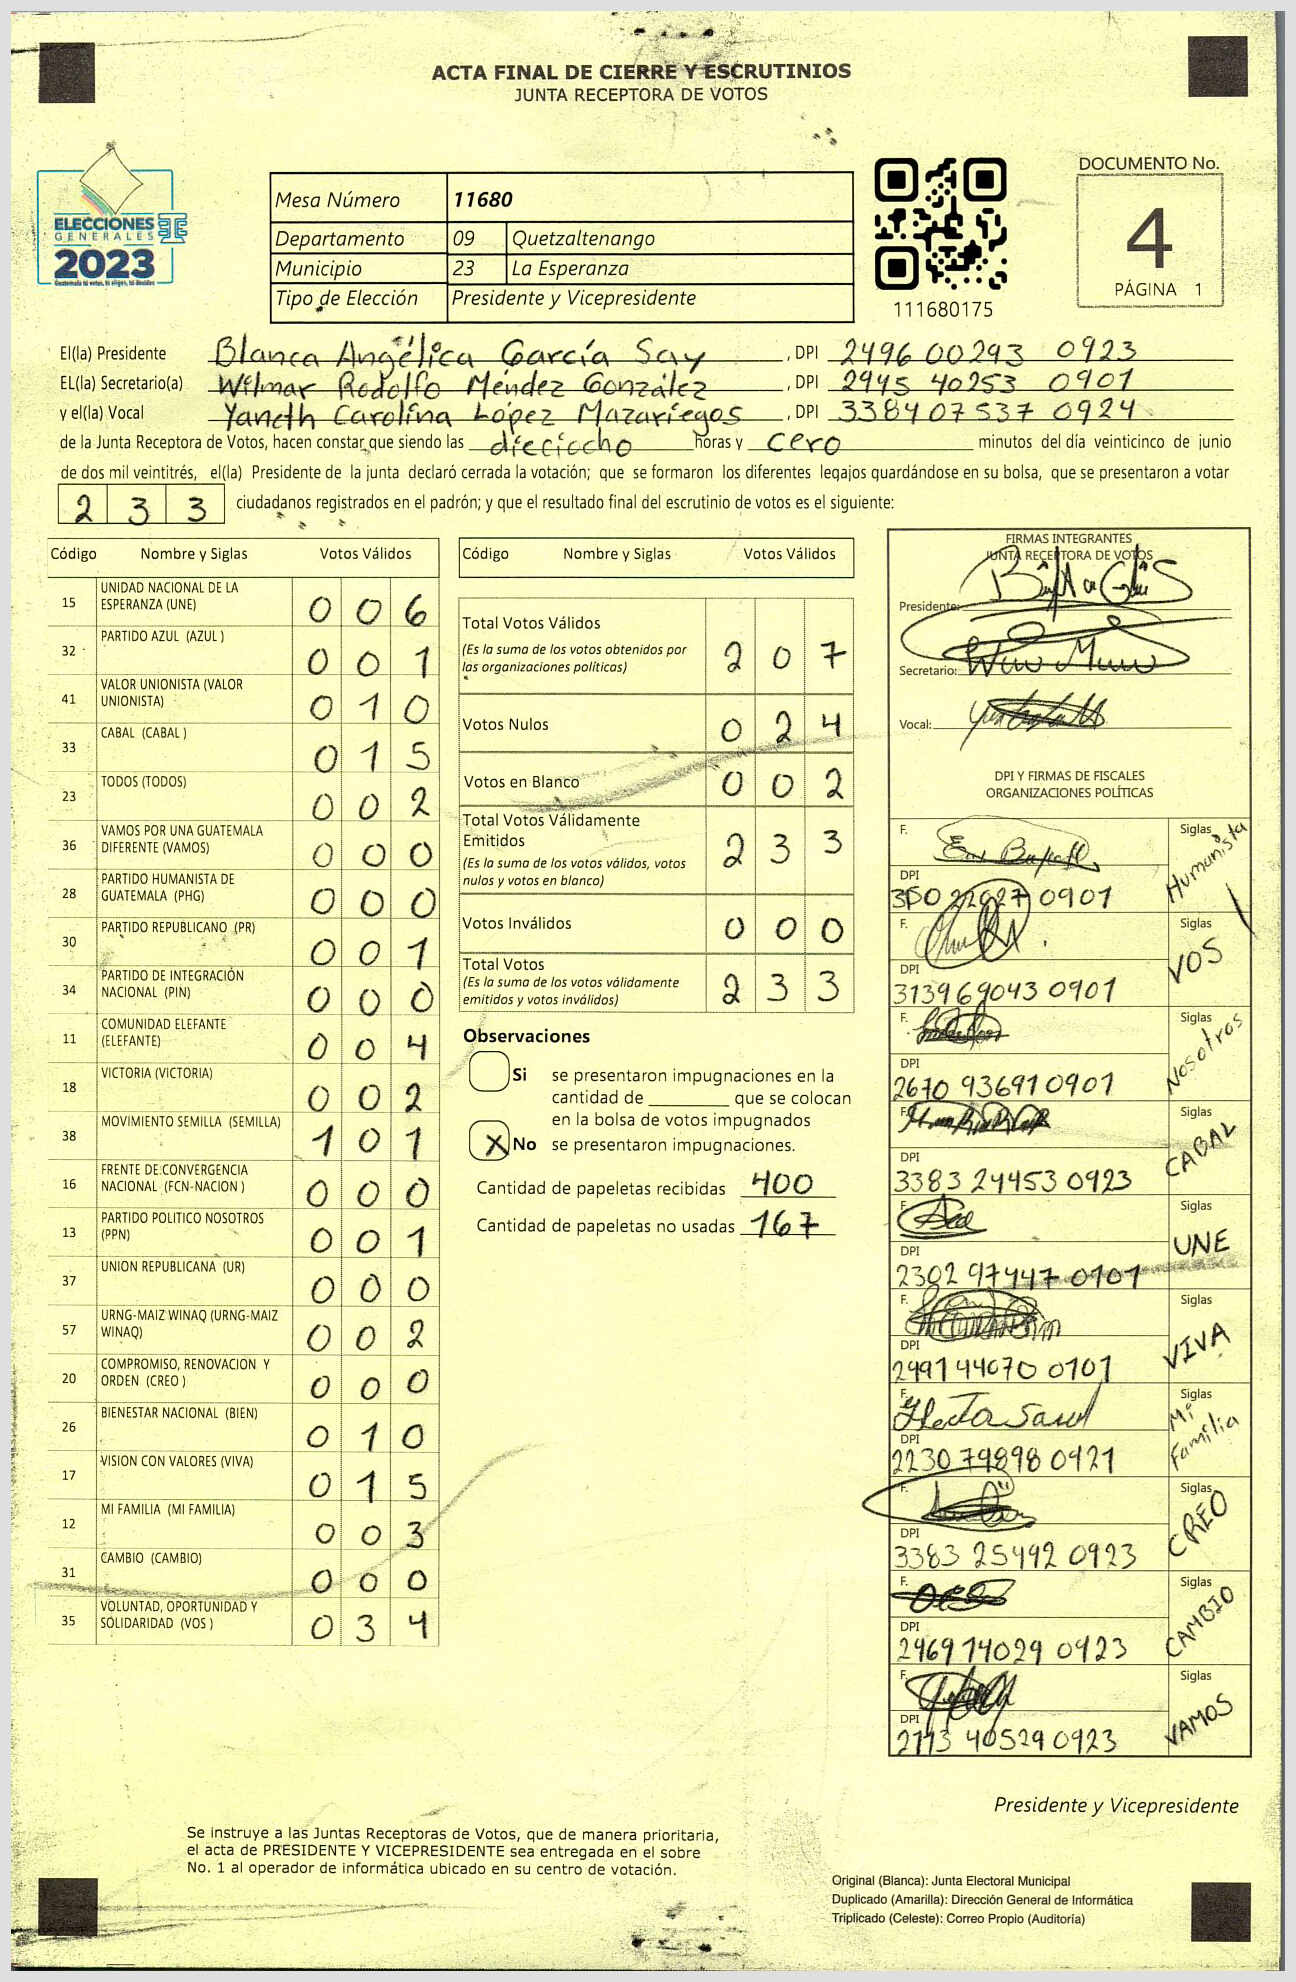 ACTA FINAL DE CIERRE Y ESCRUTINIOS
JUNTA RECEPTORA DE VOTOS
ELECCIONES
GENERALES
2023
Guatemala tú votas, tú eliges, tú decides
Mesa Número 11680
Departamento 09 Quetzaltenango
Municipio 23 La Esperanza
Tipo de Elección Presidente y Vicepresidente
111680175
DOCUMENTO No.
4
PÁGINA 1
El(la) Presidente Blanca Angélica García Say , DPI 2496 00293 0923
EL(la) Secretario(a) Wilmar Rodolfo Méndez González , DPI 2945 40253 0901
y el(la) Vocal Yaneth Carolina López Mazariegos , DPI 3384 07537 0924
de la Junta Receptora de Votos, hacen constar que siendo las dieciocho horas y cero minutos del día veinticinco de junio
de dos mil veintitrés, el(la) Presidente de la junta declaró cerrada la votación; que se formaron los diferentes legajos quardándose en su bolsa, que se presentaron a votar
2 3 3 ciudadanos registrados en el padrón; y que el resultado final del escrutinio de votos es el siguiente:
Código Nombre y Siglas Votos Válidos
15 UNIDAD NACIONAL DE LA ESPERANZA (UNE) 0 0 6
32 PARTIDO AZUL (AZUL ) 0 0 1
41 VALOR UNIONISTA (VALOR UNIONISTA) 0 1 0
33 CABAL (CABAL ) 0 1 5
23 TODOS (TODOS) 0 0 2
36 VAMOS POR UNA GUATEMALA DIFERENTE (VAMOS) 0 0 0
28 PARTIDO HUMANISTA DE GUATEMALA (PHG) 0 0 0
30 PARTIDO REPUBLICANO (PR) 0 0 1
34 PARTIDO DE INTEGRACIÓN NACIONAL (PIN) 0 0 0
11 COMUNIDAD ELEFANTE (ELEFANTE) 0 0 4
18 VICTORIA (VICTORIA) 0 0 2
38 MOVIMIENTO SEMILLA (SEMILLA) 1 0 1
16 FRENTE DE CONVERGENCIA NACIONAL (FCN-NACION ) 0 0 0
13 PARTIDO POLITICO NOSOTROS (PPN) 0 0 1
37 UNION REPUBLICANA (UR) 0 0 0
57 URNG-MAIZ WINAQ (URNG-MAIZ WINAQ) 0 0 2
20 COMPROMISO, RENOVACION Y ORDEN (CREO ) 0 0 0
26 BIENESTAR NACIONAL (BIEN) 0 1 0
17 VISION CON VALORES (VIVA) 0 1 5
12 MI FAMILIA (MI FAMILIA) 0 0 3
31 CAMBIO (CAMBIO) 0 0 0
35 VOLUNTAD, OPORTUNIDAD Y SOLIDARIDAD (VOS ) 0 3 4
Código Nombre y Siglas Votos Válidos
Total Votos Válidos 2 0 7
(Es la suma de los votos obtenidos por
las organizaciones políticas)
Votos Nulos 0 2 4
Votos en Blanco 0 0 2
Total Votos Válidamente
Emitidos 2 3 3
(Es la suma de los votos válidos, votos
nulos y votos en blanco)
Votos Inválidos 0 0 0
Total Votos 2 3 3
(Es la suma de los votos válidamente
emitidos y votos inválidos)
Observaciones
Si se presentaron impugnaciones en la
cantidad de ________ que se colocan
en la bolsa de votos impugnados
X No se presentaron impugnaciones.
Cantidad de papeletas recibidas 400
Cantidad de papeletas no usadas 167
FIRMAS INTEGRANTES
JUNTA RECEPTORA DE VOTOS
Presidente:
Secretario:
Vocal:
DPI Y FIRMAS DE FISCALES
ORGANIZACIONES POLÍTICAS
F. Siglas Humanista
DPI 350 22027 0901
F. Siglas VOS
DPI 3139 69043 0901
F. Siglas Nosotros
DPI 2670 93691 0901
F. Siglas CABAL
DPI 3383 24453 0923
F. Siglas UNE
DPI 2302 97447 0101
F. Siglas VIVA
DPI 2991 44070 0101
F. Siglas Mi Familia
DPI 2230 79898 0921
F. Siglas CREO
DPI 3383 25492 0923
F. Siglas CAMBIO
DPI 2969 14029 0923
F. Siglas VAMOS
DPI 2773 40529 0923
Presidente y Vicepresidente
Se instruye a las Juntas Receptoras de Votos, que de manera prioritaria,
el acta de PRESIDENTE Y VICEPRESIDENTE sea entregada en el sobre
No. 1 al operador de informática ubicado en su centro de votación.
Original (Blanca): Junta Electoral Municipal
Duplicado (Amarilla): Dirección General de Informática
Triplicado (Celeste): Correo Propio (Auditoría)